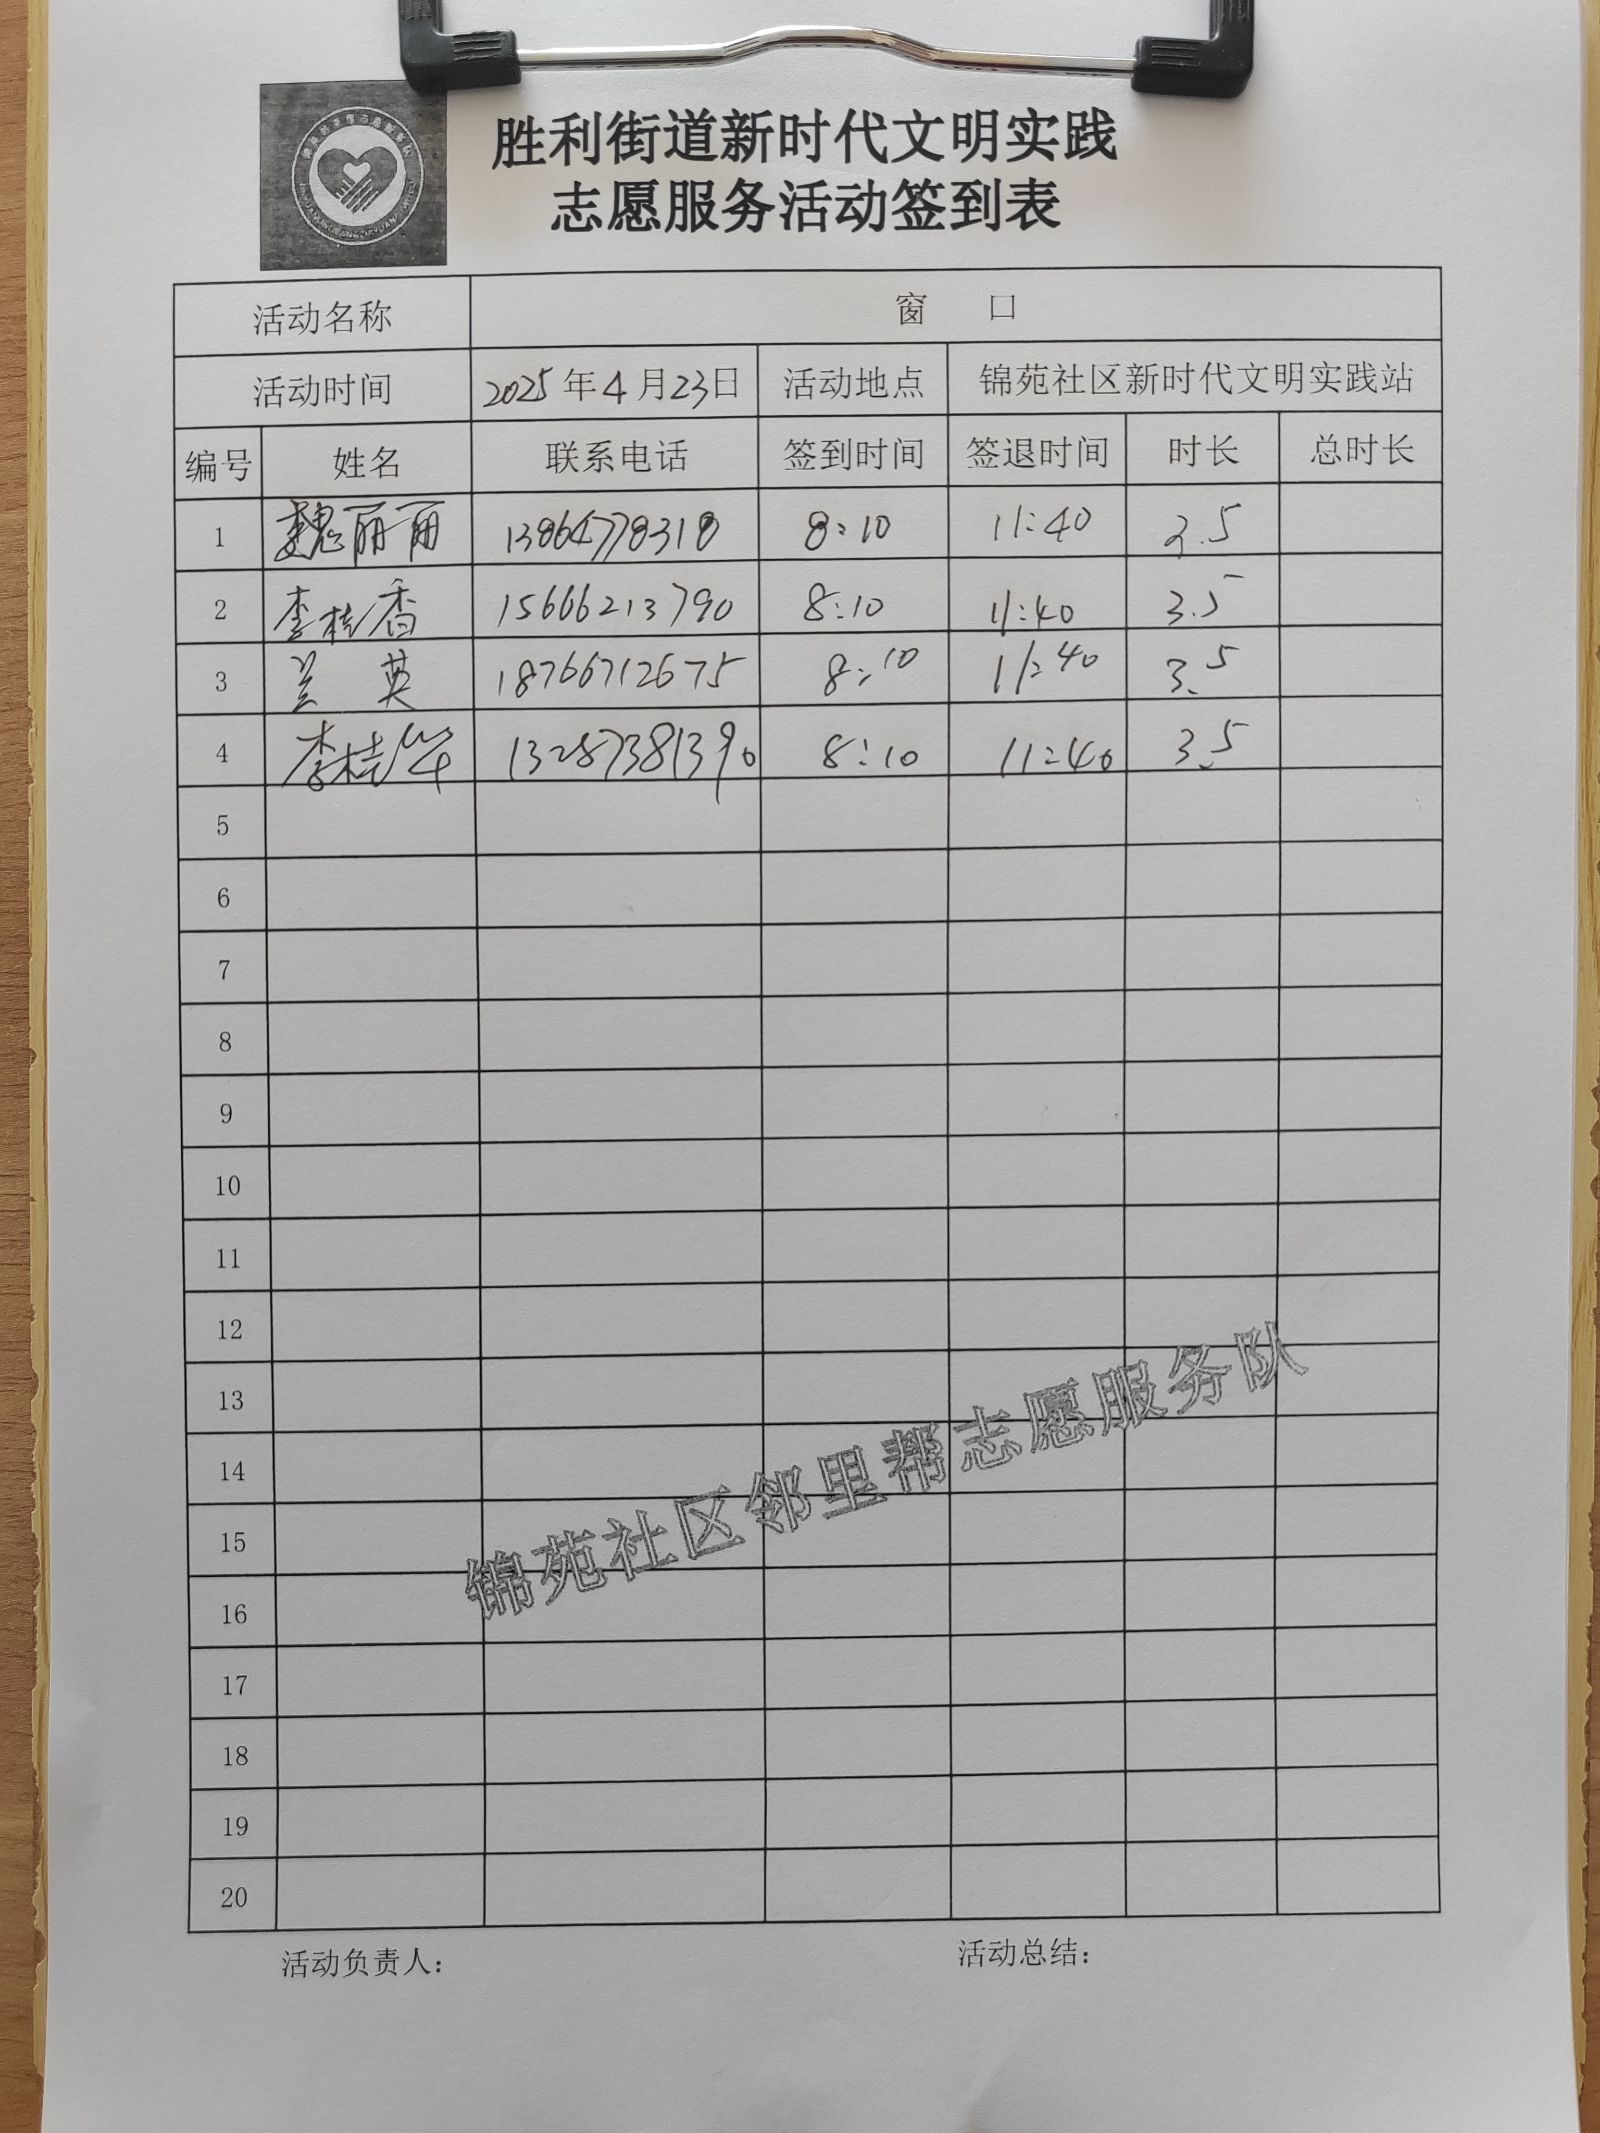 胜利街道新时代文明实践
志愿服务活动签到表
活动名称 窗 口
活动时间 2025年4月23日 活动地点 锦苑社区新时代文明实践站
编号 姓名 联系电话 签到时间 签退时间 时长 总时长
1 魏丽丽 13864778318 8:10 11:40 3.5
2 李桂香 15666213790 8:10 11:40 3.5
3 兰英 18766712675 8:10 11:40 3.5
4 李桂华 13287381390 8:10 11:40 3.5
5
6
7
8
9
10
11
12
13
14
15
16
17
18
19
20
锦苑社区邻里帮志愿服务队
活动负责人： 活动总结：